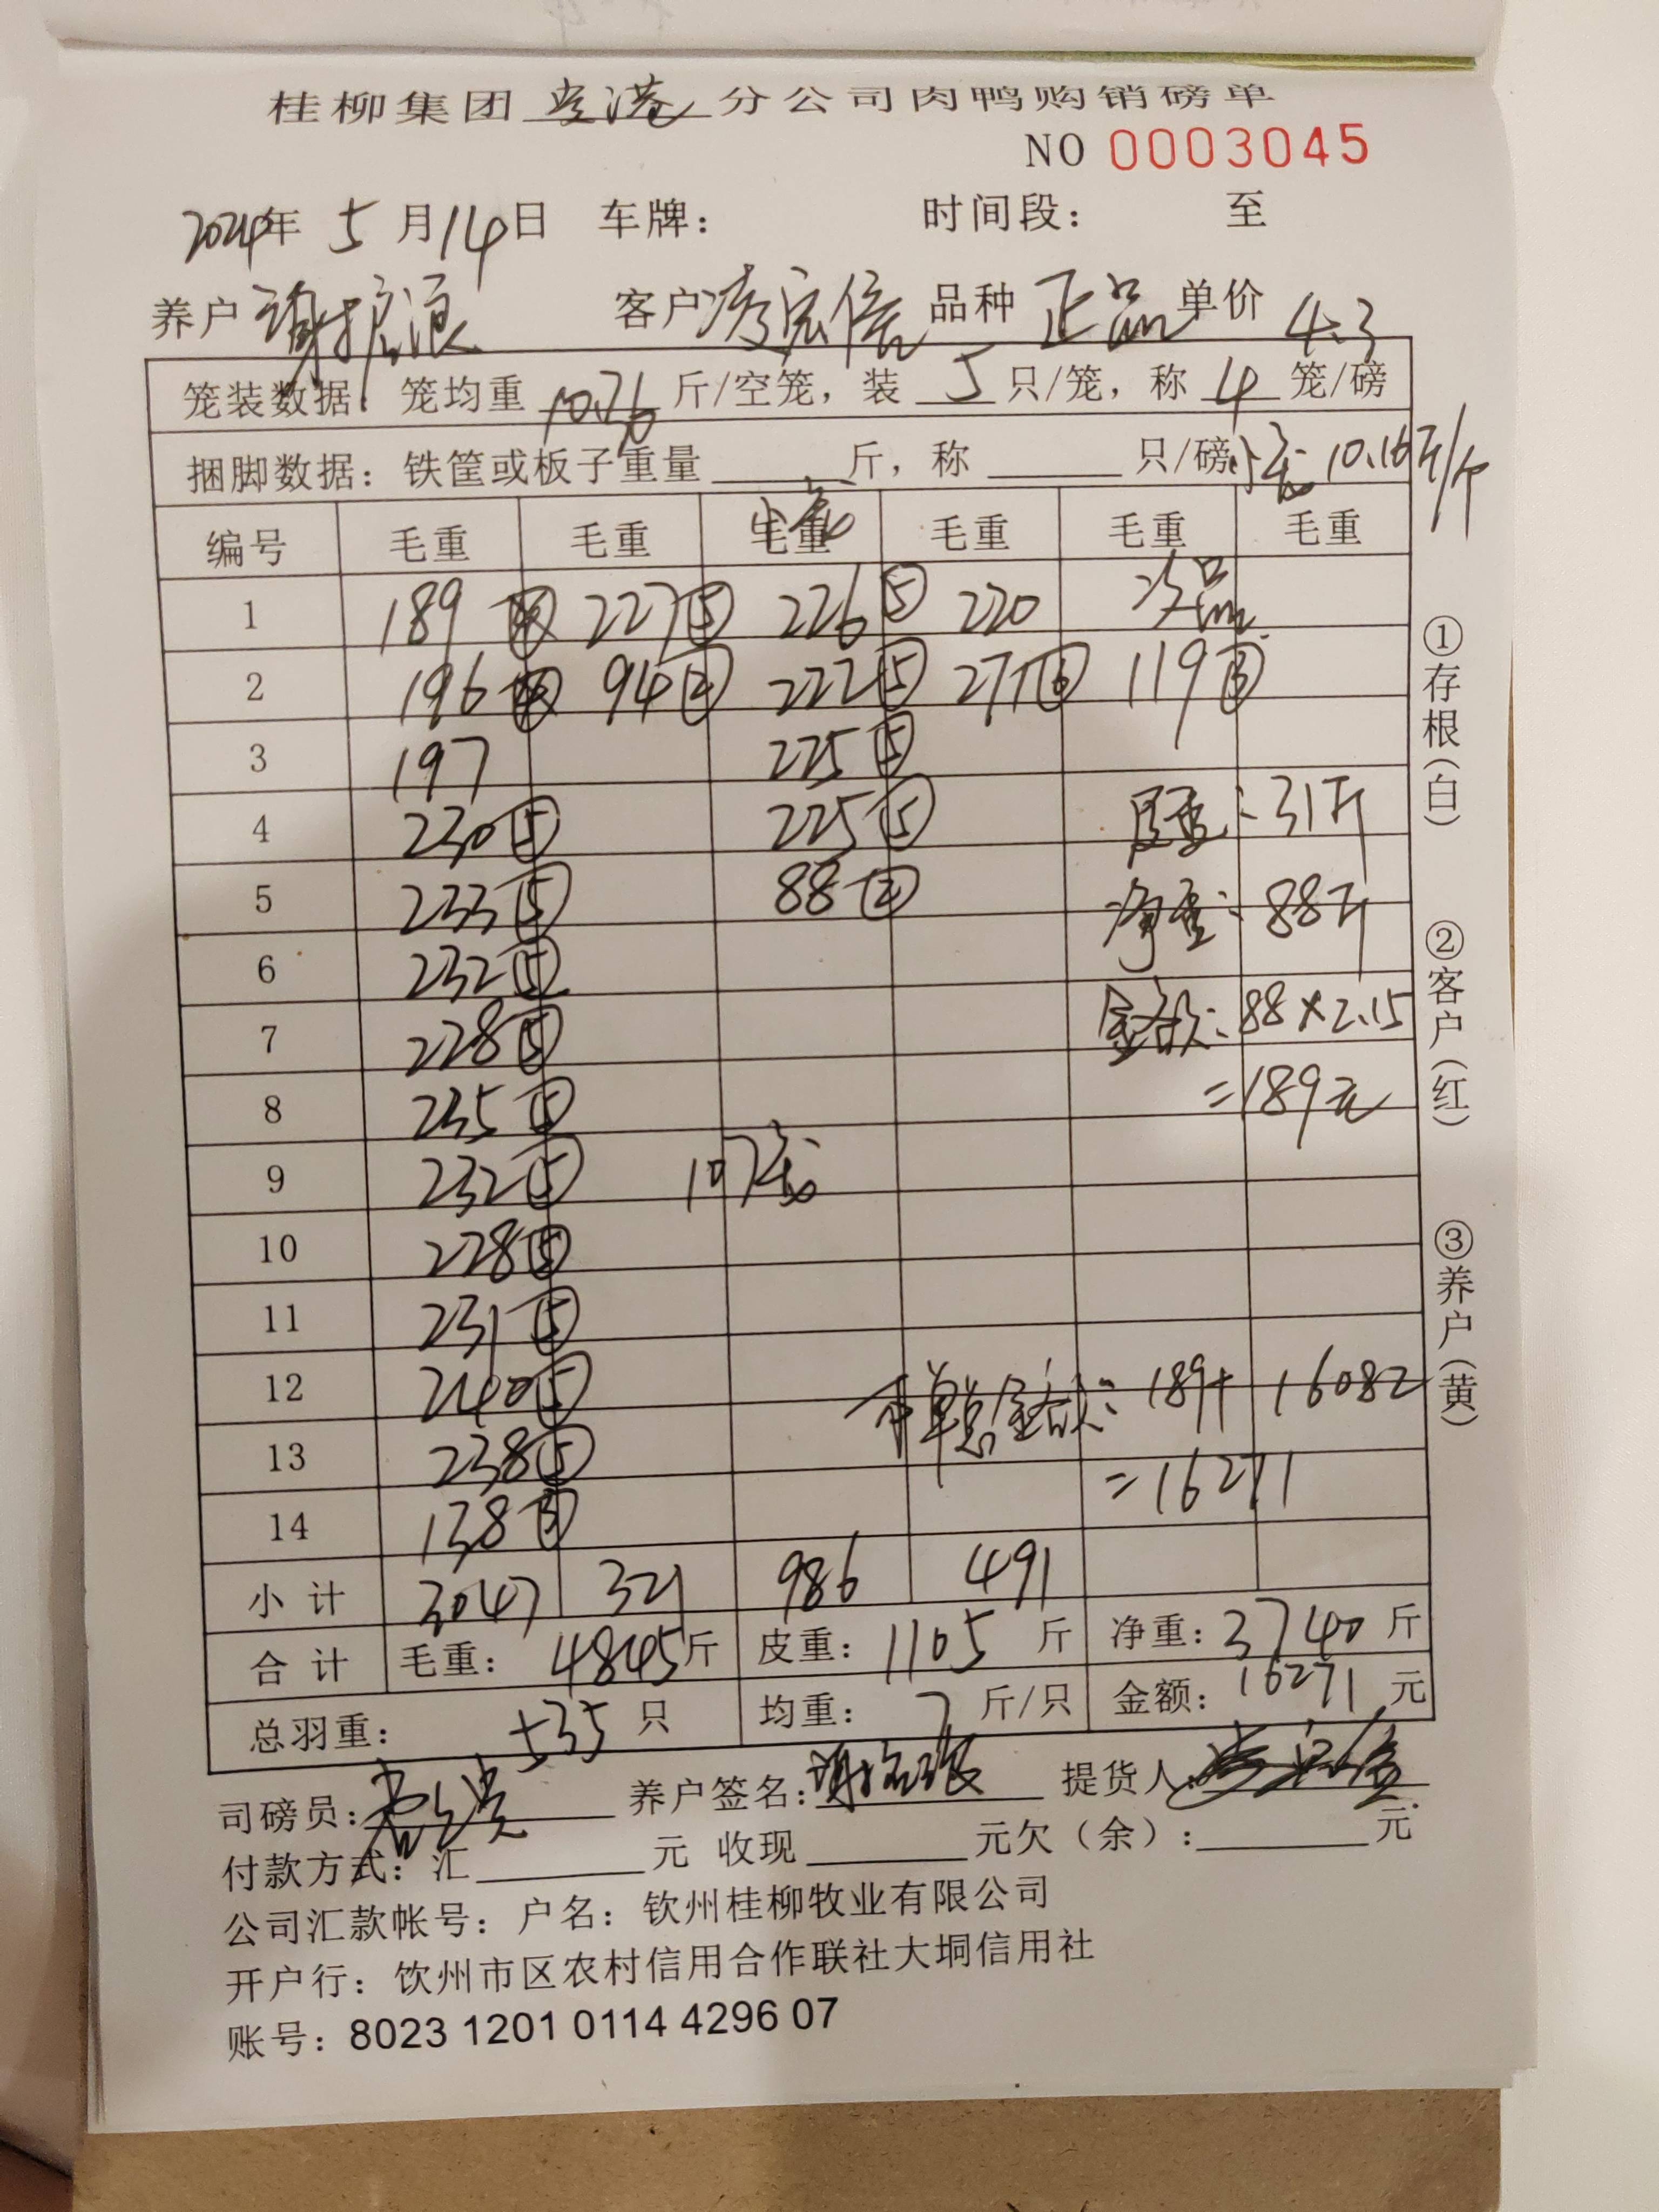 桂柳集团贵港分公司肉鸭购销磅单
NO 0003045
2024年 5 月 14 日 车牌： 时间段： 至
养户 谢 客户 品种 正品 单价 4.3
笼装数据：笼均重 10.36 斤/空笼，装 5 只/笼，称 4 笼/磅
捆脚数据：铁筐或板子重量 斤，称 只/磅 小笼 10.16斤/个
小笼
编号 毛重 毛重 毛重 毛重 毛重 毛重
1 189 ④ 227 ⑤ 226 ⑤ 220 次品
2 196 ④ 94 ② 222 ⑤ 271 ⑥ 119 ③
3 197 225 ⑤
4 230 ⑤ 225 ⑤ 皮重：31斤
5 233 ⑤ 88 ② 净重：88斤
6 232 ⑤
7 228 ⑤ 金额：88×2.15
8 235 ⑤ =189元
9 232 ⑤ 107笼
10 228 ⑤
11 231 ⑤
12 240 ⑤ 本单总金额：189+16082
13 238 ⑤ =16271
14 138 ③
小计 3047 321 986 491
合计 毛重：4845斤 皮重：1105 斤 净重：3740 斤
总羽重：535 只 均重：7 斤/只 金额：16271 元
司磅员： 养户签名：谢 提货人：
付款方式：汇 元 收现 元欠（余）： 元
公司汇款帐号：户名：钦州桂柳牧业有限公司
开户行：钦州市区农村信用合作联社大垌信用社
账号：8023 1201 0114 4296 07
①存根（白）
②客户（红）
③养户（黄）